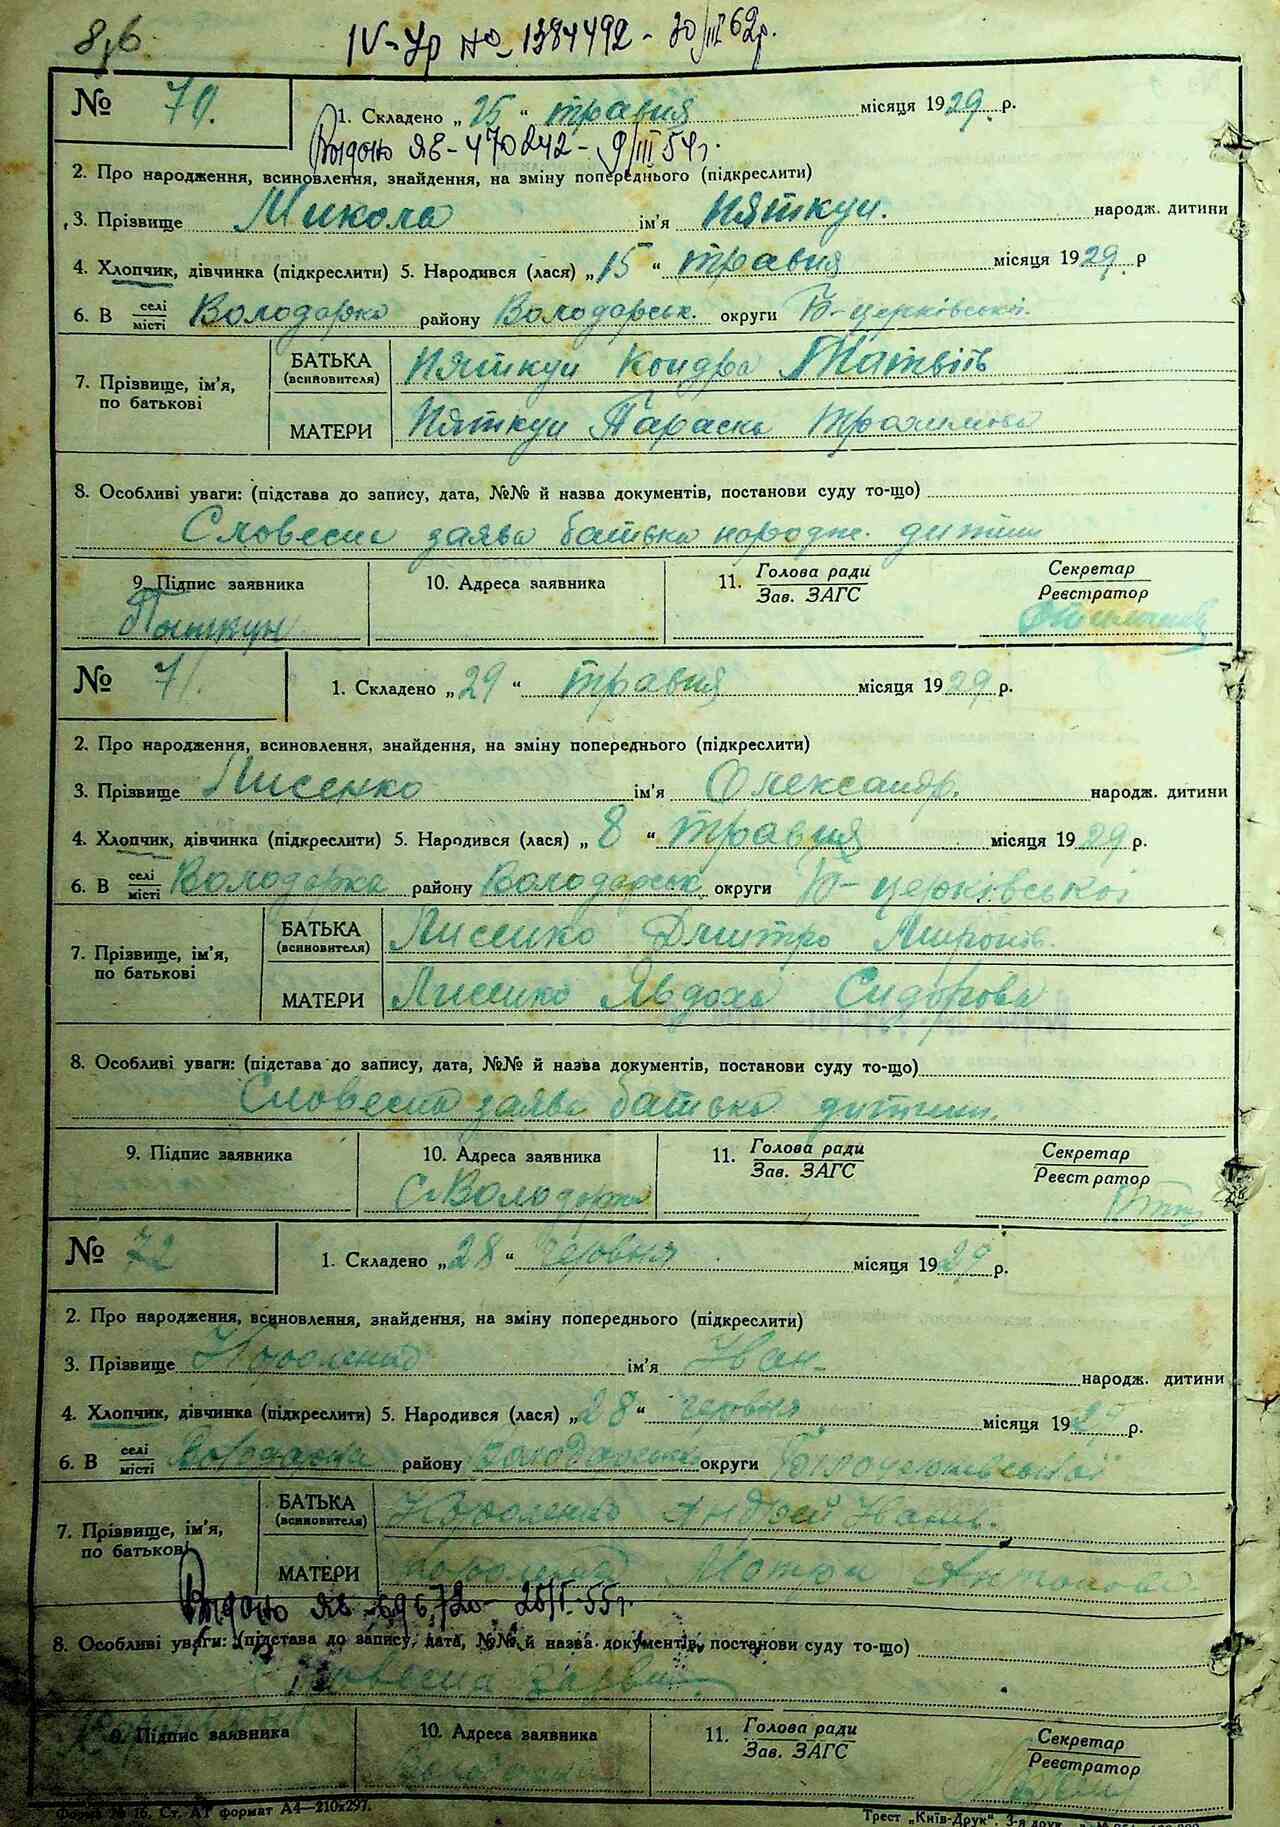 IV-Ур № 1384492 - 30/III 62р.
№ 70. 1. Складено „25“ травня місяця 1929 р.
Видано ЯЕ-470242- 9/III 54г.
2. Про народження, всиновлення, знайдення, на зміну попереднього (підкреслити)
3. Прізвище Микола ім'я Пяткун. народж. дитини
4. Хлопчик, дівчинка (підкреслити) 5. Народився (лася) „15“ травня місяця 1929 р
6. В селі/місті Володарка району Володарськ. округи Б-церківської.
7. Прізвище, ім'я, по батькові БАТЬКА (всиновителя) Пяткун Кондра Матвіїв
МАТЕРИ Пяткун Параска Трохимова
8. Особливі уваги: (підстава до запису, дата, №№ й назва документів, постанови суду то-що)
Словесна заява батька народж. дитини
9. Підпис заявника 10. Адреса заявника 11. Голова ради/Зав. ЗАГС Секретар/Реєстратор
№ 71. 1. Складено „29“ травня місяця 1929 р.
2. Про народження, всиновлення, знайдення, на зміну попереднього (підкреслити)
3. Прізвище Лисенко ім'я Олександр. народж. дитини
4. Хлопчик, дівчинка (підкреслити) 5. Народився (лася) „8“ травня місяця 1929 р.
6. В селі/місті Володарка району Володарськ. округи Б-церківської
7. Прізвище, ім'я, по батькові БАТЬКА (всиновителя) Лисенко Дмитро Миронів.
МАТЕРИ Лисенко Явдоха Сидорова
8. Особливі уваги: (підстава до запису, дата, №№ й назва документів, постанови суду то-що)
Словесна заява батька дитини.
9. Підпис заявника 10. Адреса заявника 11. Голова ради/Зав. ЗАГС Секретар/Реєстратор
с. Володарка
№ 72 1. Складено „28“ червня місяця 1929 р.
2. Про народження, всиновлення, знайдення, на зміну попереднього (підкреслити)
3. Прізвище ім'я Іван народж. дитини
4. Хлопчик, дівчинка (підкреслити) 5. Народився (лася) „28“ червня місяця 1929 р.
6. В селі/місті Володарка району Володарськ округи Білоцерківської
7. Прізвище, ім'я, по батькові БАТЬКА (всиновителя) Андрей Іванів.
МАТЕРИ Мотря Антонова
Видано ЯЕ-696720- 25/I-55г.
8. Особливі уваги: (підстава до запису, дата, №№ й назва документів, постанови суду то-що)
Словесна заява.
9. Підпис заявника 10. Адреса заявника 11. Голова ради/Зав. ЗАГС Секретар/Реєстратор
Володарка
Форма № 16. Ст. А1 формат А4—210х297. Трест „Київ-Друк“. 3-я друк.